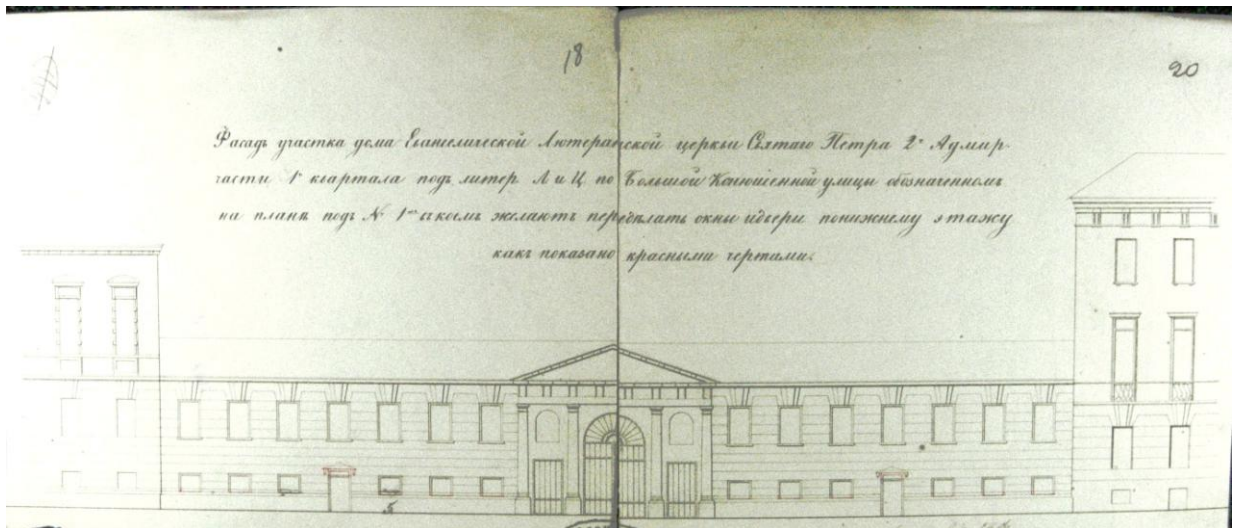 18
20
Фасадъ участка дома Евангелической Лютеранской церкви Святаго Петра 2й Адмир.
части 1го квартала подъ литер. А и Ц по Большой Конюшенной улицы обозначенномъ
на планѣ подъ № 1мъ въ коемъ желаютъ передѣлать окны и двери по нижнему этажу
какъ показано красными чертами.